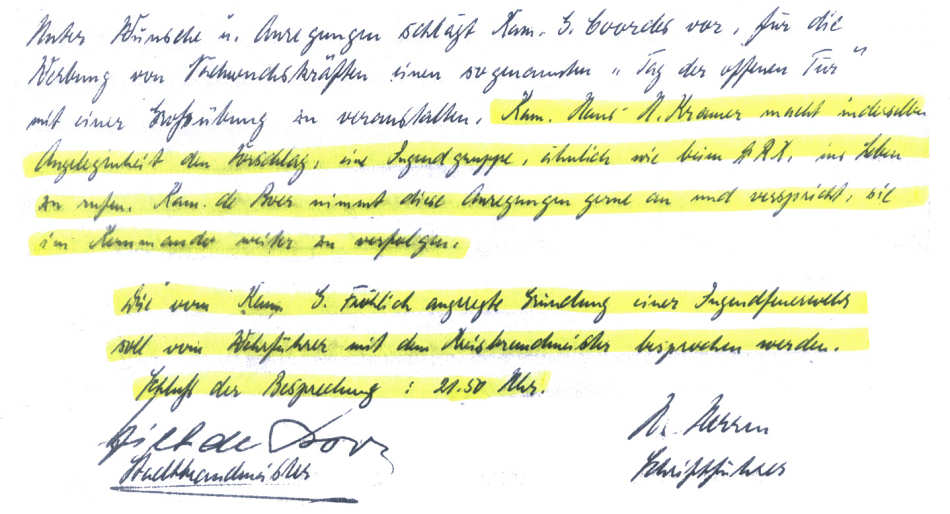 Unter Wünsche u. Anregungen schlägt Kam. G. Coordes vor, für die
Werbung von Nachwuchskräften einen sogenannten „Tag der offenen Tür"
mit einer Großübung zu veranstalten. Kam. Hans N. Kramer macht in derselben
Angelegenheit den Vorschlag, eine Jugendgruppe, ähnlich wie beim DRK, ins Leben
zu rufen. Kam. de Boer nimmt diese Anregungen gerne an und verspricht, sie
im Kommando weiter zu verfolgen.
Die vom Kam. G. Fröhlich angeregte Gründung einer Jugendfeuerwehr
soll vom Wehrführer mit dem Kreisbrandmeister besprochen werden.
Schluß der Besprechung : 21.50 Uhr.
de Boer
Stadtbrandmeister
Schriftführer